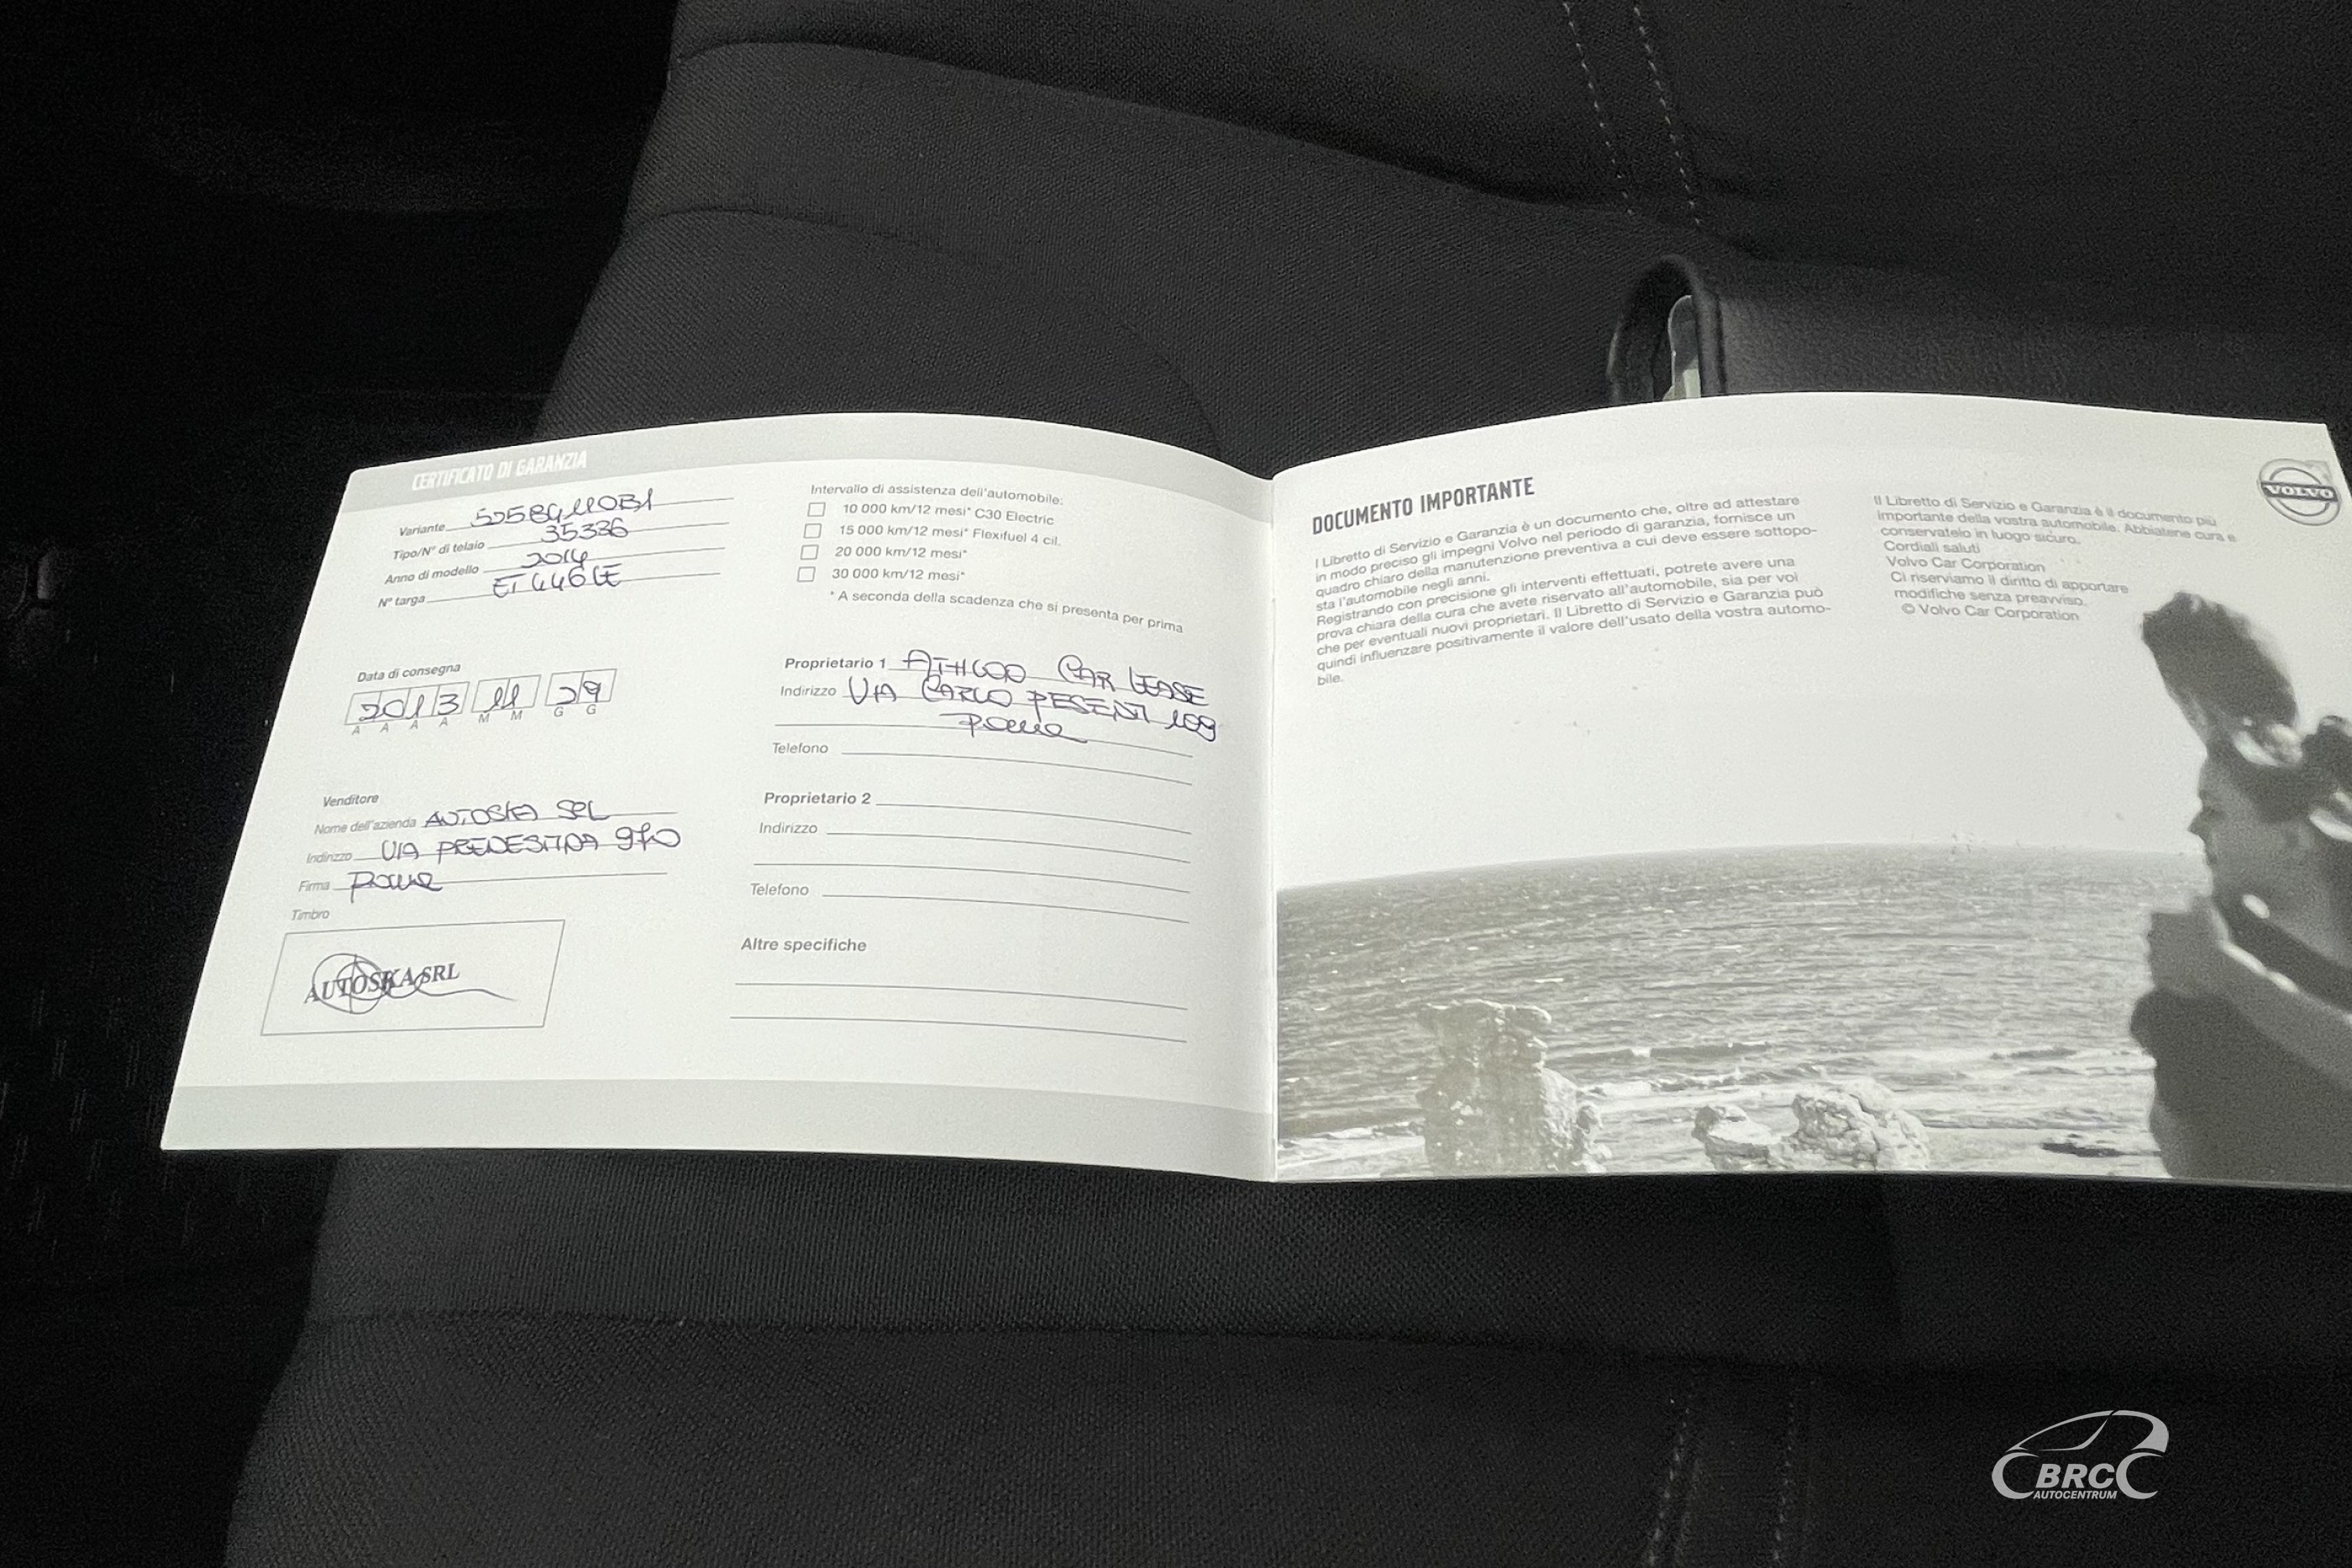 CERTIFICATO DI GARANZIA
Variante
Tipo/N° di telaio 35336
Anno di modello 2014
N° targa ET446LE
Data di consegna
2013 11 29
A A A A M M G G
Venditore
Nome dell'azienda AUTOSKA SRL
Indirizzo VIA PRENESTINA 970
Firma ROMA
Timbro
AUTOSKA SRL
Intervallo di assistenza dell'automobile:
10 000 km/12 mesi* C30 Electric
15 000 km/12 mesi* Flexifuel 4 cil.
20 000 km/12 mesi*
30 000 km/12 mesi*
* A seconda della scadenza che si presenta per prima
Proprietario 1 ATHLON CAR LEASE
Indirizzo VIA CARLO PESENTI 109
ROMA
Telefono
Proprietario 2
Indirizzo
Telefono
Altre specifiche
DOCUMENTO IMPORTANTE
l Libretto di Servizio e Garanzia è un documento che, oltre ad attestare
in modo preciso gli impegni Volvo nel periodo di garanzia, fornisce un
quadro chiaro della manutenzione preventiva a cui deve essere sottopo-
sta l'automobile negli anni.
Registrando con precisione gli interventi effettuati, potrete avere una
prova chiara della cura che avete riservato all'automobile, sia per voi
che per eventuali nuovi proprietari. Il Libretto di Servizio e Garanzia può
quindi influenzare positivamente il valore dell'usato della vostra automo-
bile.
Il Libretto di Servizio e Garanzia è il documento più
importante della vostra automobile. Abbiatene cura e
conservatelo in luogo sicuro.
Cordiali saluti
Volvo Car Corporation
Ci riserviamo il diritto di apportare
modifiche senza preavviso.
© Volvo Car Corporation
VOLVO
BRC
AUTOCENTRUM